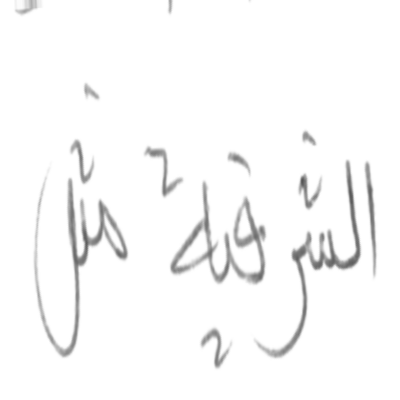 الشرقية مثل